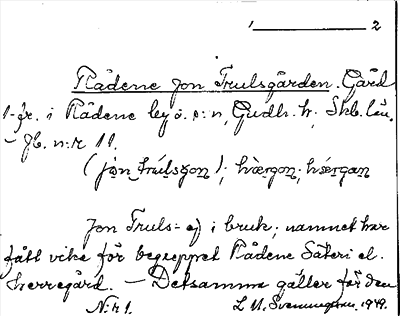 1 2
Rådene Jon Trulsgården. Gård
1-fr. i Rådene by o. s:n, Gudh. h., Skb. län.
- Jb. n:r 11.
(jòn trúlsgon); hærgon; hǽrgan
Jon Truls- ej i bruk; namnet har
fått vika för begreppet Rådene Säteri el.
herregård. - Detsamma gäller för den
N:r 1. L. M. Svenungsson. 1949.